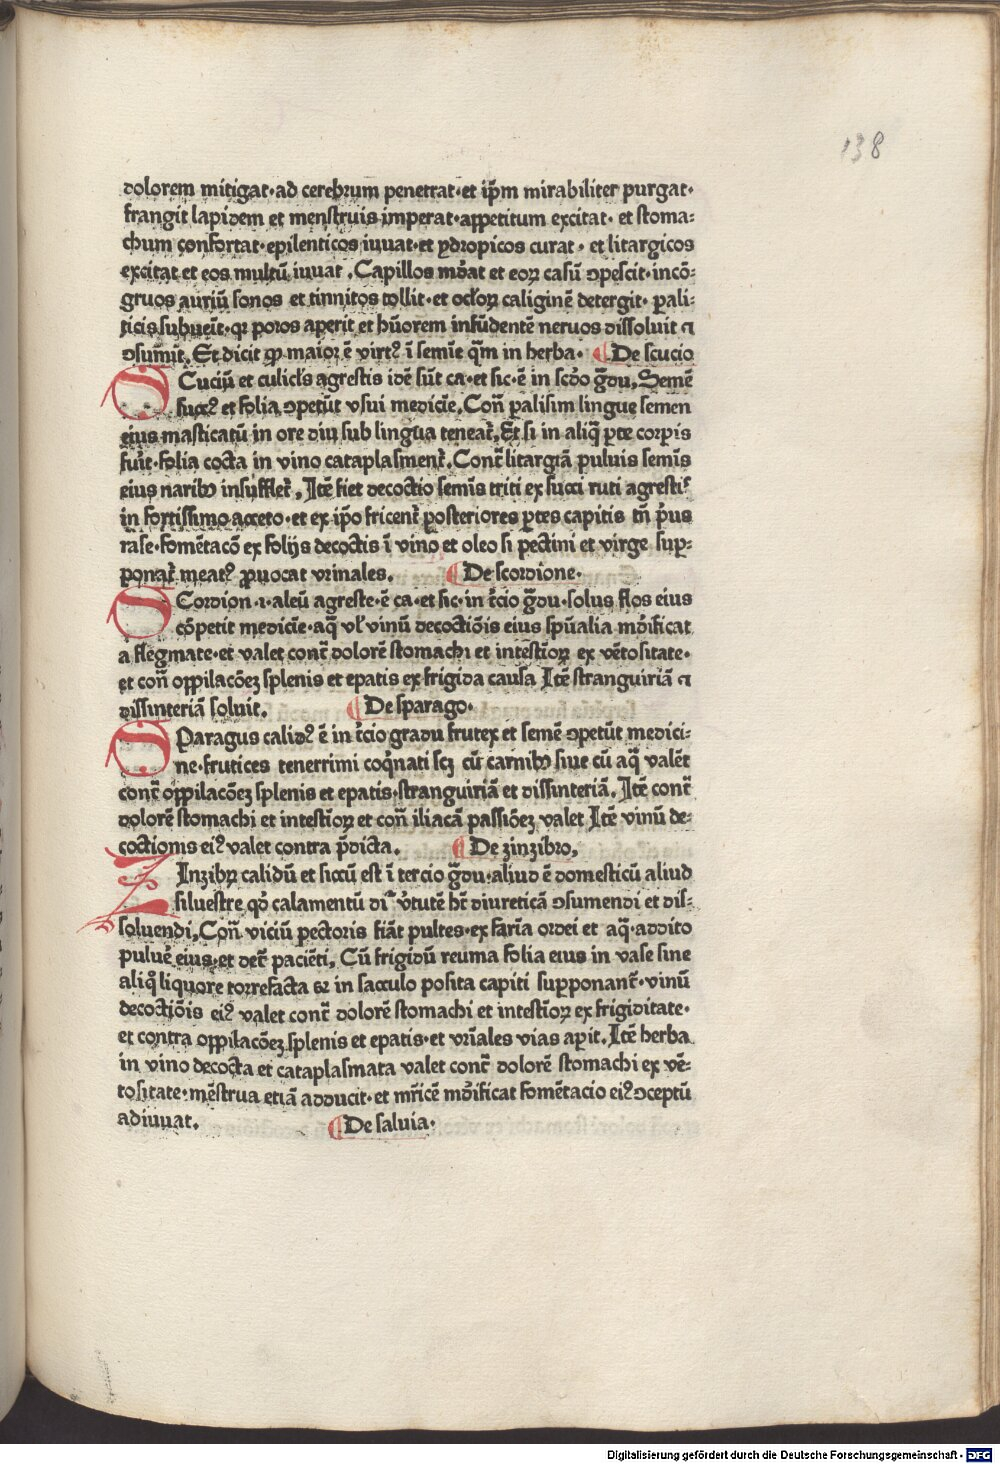 138
dolorem mitigat·ad cerebrum penetrat·et ip̄m mirabiliter purgat·
frangit lapidem et menstruis imperat·appetitum excitat· et stoma⸗
chum confortat·epilenticos iuuat·et ydropicos curat· et litargicos
excitat et eos multū iuuat .Capillos mūdat et eoꝝ casū ↄpescit·incō⸗
gruos auriū sonos et tinnitos tollit·et ocĺoꝝ caliginē detergit· pali⸗
ticis subuēit·qꝛ poros aperit et hūorem infūdentē neruos dissoluit ⁊
ↄsumit. Et dicit ꝙ maior ē virtꝰ ī semīe q̄m in herba· De scucio
SCuciū et culicĺs agrestis idē sūt ca·et sic·ē in scďo g̃du. Semē
succꝰ et folia ↄpetūt vsui medicīe. Con̄ palisim lingue semen
eius masticatū in ore diu sub lingua teneat᷑. Et si in aliq̄ pte corpis
fu᷑it·folia cocta in vino cataplasment᷑. Cont᷑ litargiā puluis semīs
eius narib⁹ insufflet᷑. Itē fiet decoctio semīs triti ex succi ruti agrestiꝰ
in fortissimo acceto·et ex ip̄o fricent᷑ posteriores p̱tes capitis tn̄ p᷑us
rase·fomētacō ex folijs decoctis ī vino et oleo si pectini et virge sup⸗
ponat᷑ meatꝰ ꝓuocat vrinales. De scordione·
SCordion·i·aleū agreste·ē ca·et sic·in t᷑cio g̃du·solus flos eius
cōpetit medicīe·aq̄ vĺ vinū decoctiōis eius spūalia mūdificat
a flegmate·et valet cont᷑ dolorē stomachi et intestīoꝝ ex vētositate·
et con̄ oppilacōeꝫ splenis et epatis ex frigida causa Itē stranguiriā ⁊
dissinteriā soluit. De sparago·
SParagus calidꝰ ē in t᷑cio gradu frutex et semē ↄpetūt medici⸗
ne·frutices tenerrimi coq̄nati scꝫ cū carnib⁹ siue cū aq̄ valēt
cont᷑ oppilacōeꝫ splenis et epatis·stranguiriā et dissinteriā. Itē cont᷑
dolorē stomachi et intestīoꝝ et con̄ iliacā passiōeꝫ valet Itē vinū de⸗
coctionis eiꝰ valet contra p̄dicta. De zinzibro.
ZInzibꝝ calidū et siccū est ī tercio g̃du·aliud ē domesticū aliud
siluestre qď calamentū dī v᷑tutē hꝫ diureticā ↄsumendi et dis⸗
soluendi. Con̄ viciū pectoris fiāt pultes·ex farīa ordei et aq̄·addito
puluē eius·et det᷑ paciēti. Cū frigidū reuma folia eius in vase sine
aliq̊ liquore torrefacta ⁊ in sacculo posita capiti supponant᷑·vinū
decoctiōis eiꝰ valet cont᷑ dolorē stomachi et intestīoꝝ ex frigiditate·
et contra oppilacōeꝫ splenis et epatis·et vrīales vias apit. Itē herba
in vino decocta et cataplasmata valet cont᷑ dolorē stomachi ex vē⸗
tositate·mēstrua etiā adducit·et mr̄icē mūdificat fomētacio eiꝰ ↄceptū
adiuuat. De saluia·
Digitalisierung gefördert durch die Deutsche Forschungsgemeinschaft - DFG